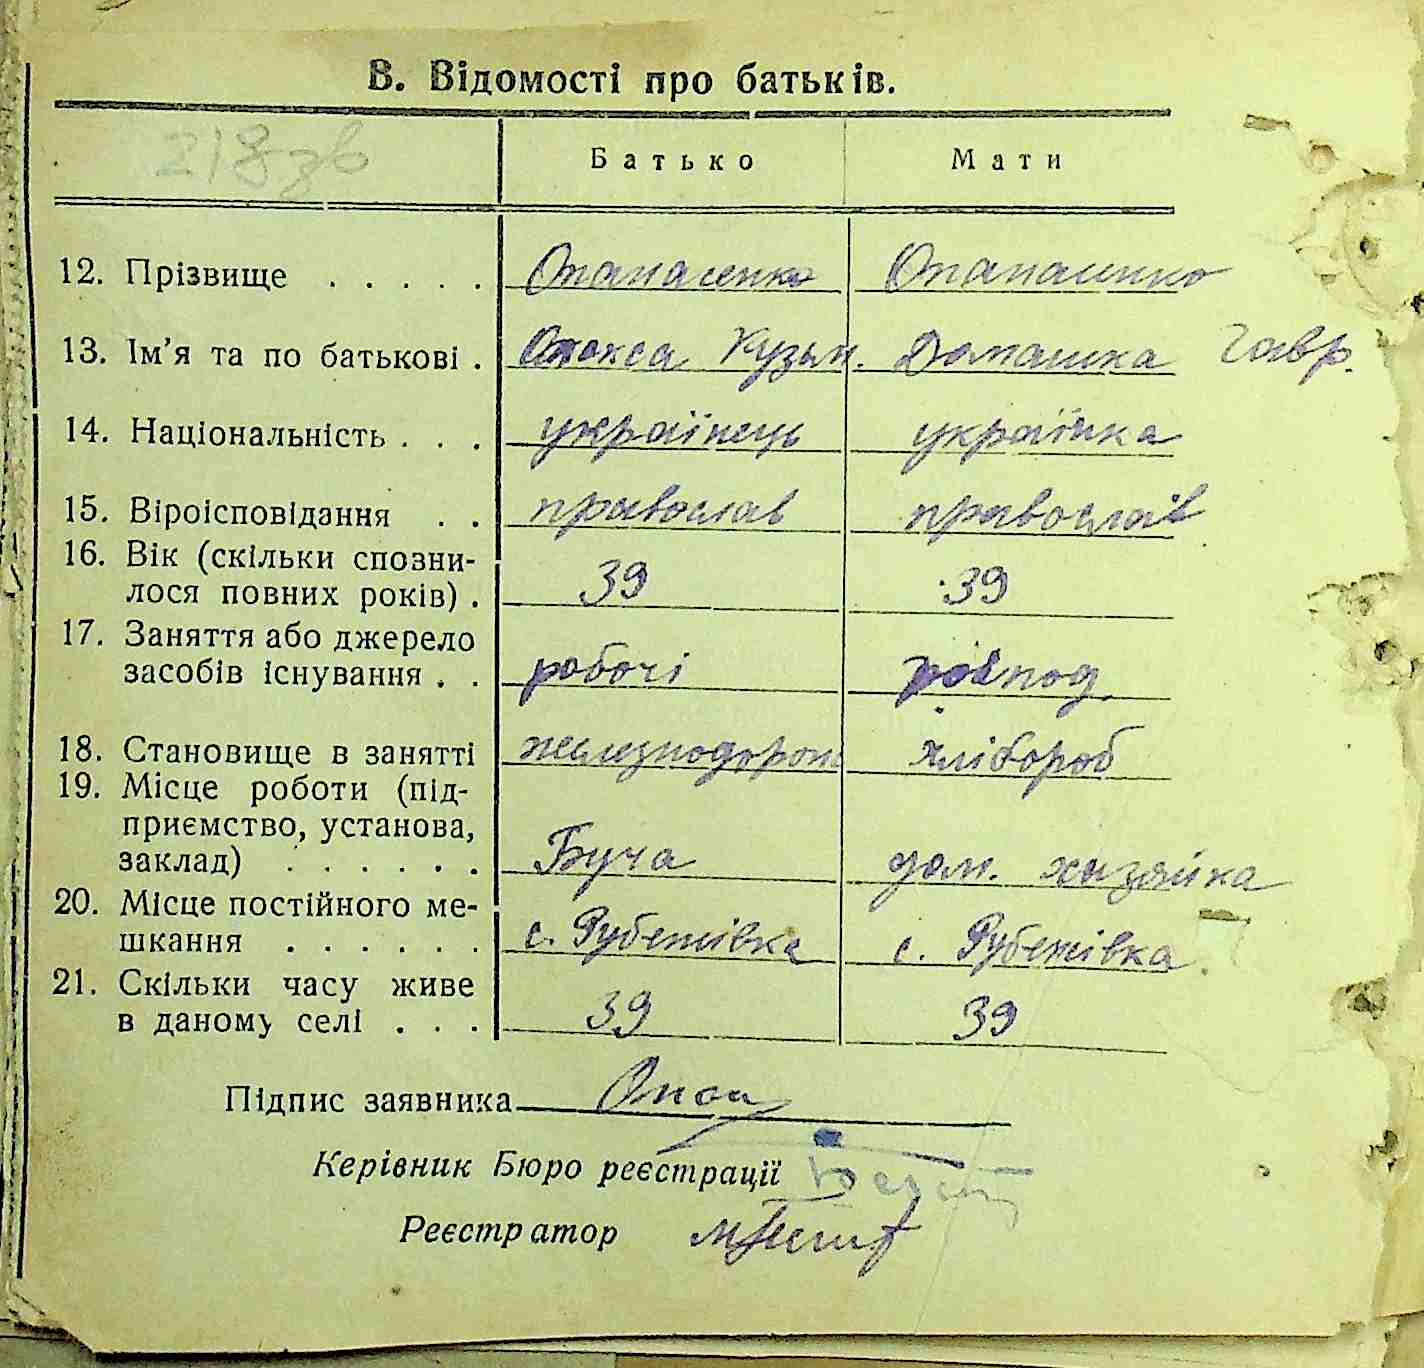 В. Відомості про батьків.
Батько Мати
12. Прізвище . . . . . Опанасенко Опанасенко
13. Ім’я та по батькові . Олекса Кузьм. Домашка Гавр.
14. Національність . . . українець українка
15. Віроісповідання . . православ православ
16. Вік (скільки спозни-
лося повних років) . 39 39
17. Заняття або джерело
засобів існування . . робочі
18. Становище в занятті железнодорож хлібороб
19. Місце роботи (під-
приємство, установа,
заклад) . . . . . . Буча дом. хазяйка
20. Місце постійного ме-
шкання . . . . . . с. Рубежівка с. Рубежівка
21. Скільки часу живе
в даному селі . . . 39 39
Підпис заявника
Керівник Бюро реєстрації
Реєстратор